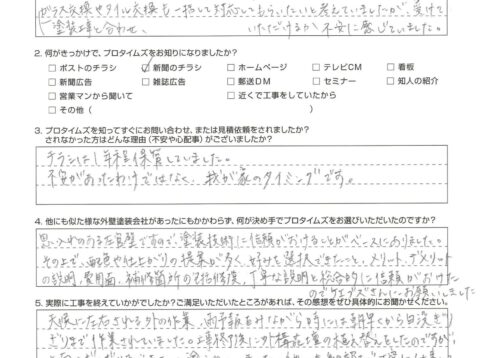 ガラス交換やタイル交換も一括して対応してもらいたいと考えていましたが、受けて
塗装工事と合わせ、いただけるか不安に感じていました。
2. 何がきっかけで、プロタイムズをお知りになりましたか?
□ポストのチラシ ☑新聞のチラシ □ホームページ □テレビCM □看板
□新聞広告 □雑誌広告 □郵送DM □セミナー □知人の紹介
□営業マンから聞いて □近くで工事をしていたから
□その他( )
3. プロタイムズを知ってすぐにお問い合わせ、または見積依頼をされましたか?
されなかった方はどんな理由(不安や心配事)がございましたか?
チラシは1年程保管していました。
不安があったわけではなく、我が家のタイミングです。
4. 他にも似た様な外壁塗装会社があったにもかかわらず、何が決め手でプロタイムズをお選びいただいたのですか?
思い入れのある左官壁ですので、塗装技術に信頼がおけることがベースにありました。
その上で、配色や仕上がりの提案が多く、好みを選択できたこと。メリット、デメリット
の説明、費用面、補修箇所の一括修繕、丁寧な説明と総合的に信頼がおけた
のでウェブズさんにお願いしました
5. 実際に工事を終えていかがでしたか?ご満足いただいたところがあれば、その感想をぜひ具体的にお聞かせください。
天候に左右される外の作業、雨予報をみながら時には早朝から日没ぎり
ぎりまで作業されていました。